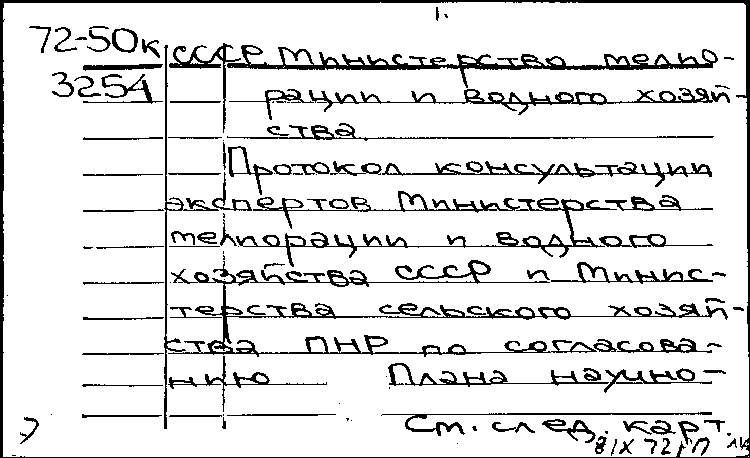 1.
72-50к СССР Министерство мелио-
3254 рации и водного хозяй-
ства.
Протокол консультации
экспертов Министерства
мелиорации и водного
хозяйства СССР и Минис-
терства сельского хозяй-
ства ПНР по согласова-
нию Плана научно-
См. след. карт.
8/IX 72